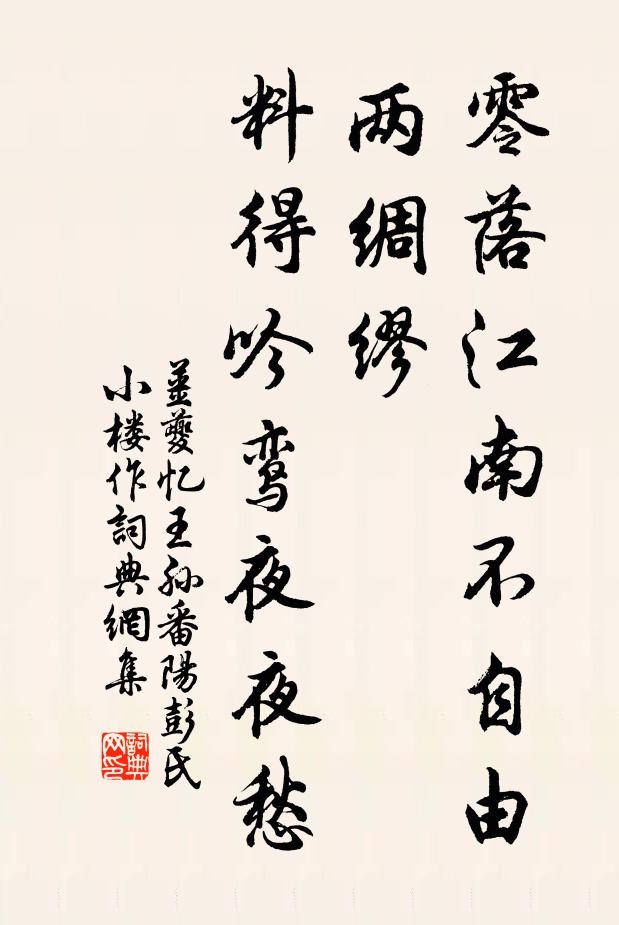 零落江南不自由
两绸缪
料得吟鸾夜夜愁
姜夔忆王孙番陽彭氏
小楼作詞典網集
詞典
网印